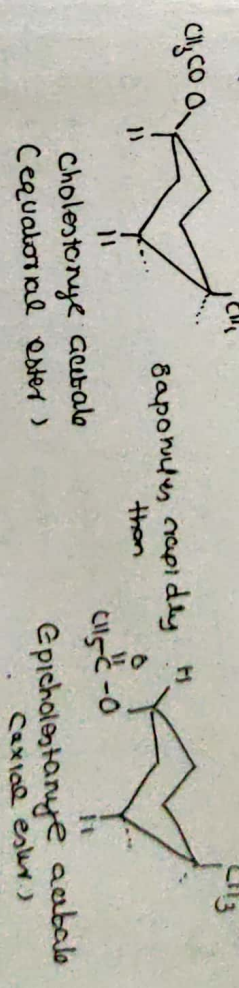 CH₃CO O
H
H
CH₃
Cholestanyl acetate
(equatorial ester)
saponifies rapidly
than
H
O
CH₃-C-O
H
CH₃
Epicholestanyl acetate
(axial ester)